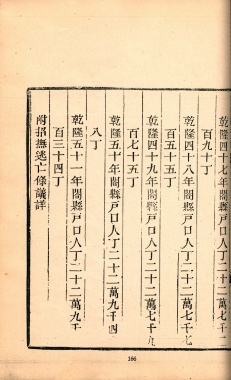 乾隆四十七年闔縣戶口人丁二十二萬七千一
百九十丁
乾隆四十八年闔縣戶口人丁二十二萬七千七
百五十五丁
乾隆四十九年闔縣戶口人丁二十二萬七千九
百七十五丁
乾隆五十年闔縣戶口人丁二十二萬九千四
八丁
乾隆五十一年闔縣戶口人丁二十二萬九千
百三十四丁
附招撫逃亡條議詳
166